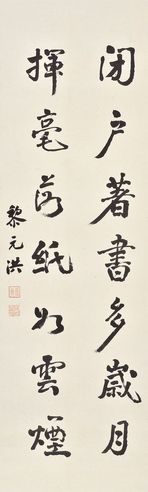 閉户著書多歲月
揮毫落紙如雲煙
黎元洪